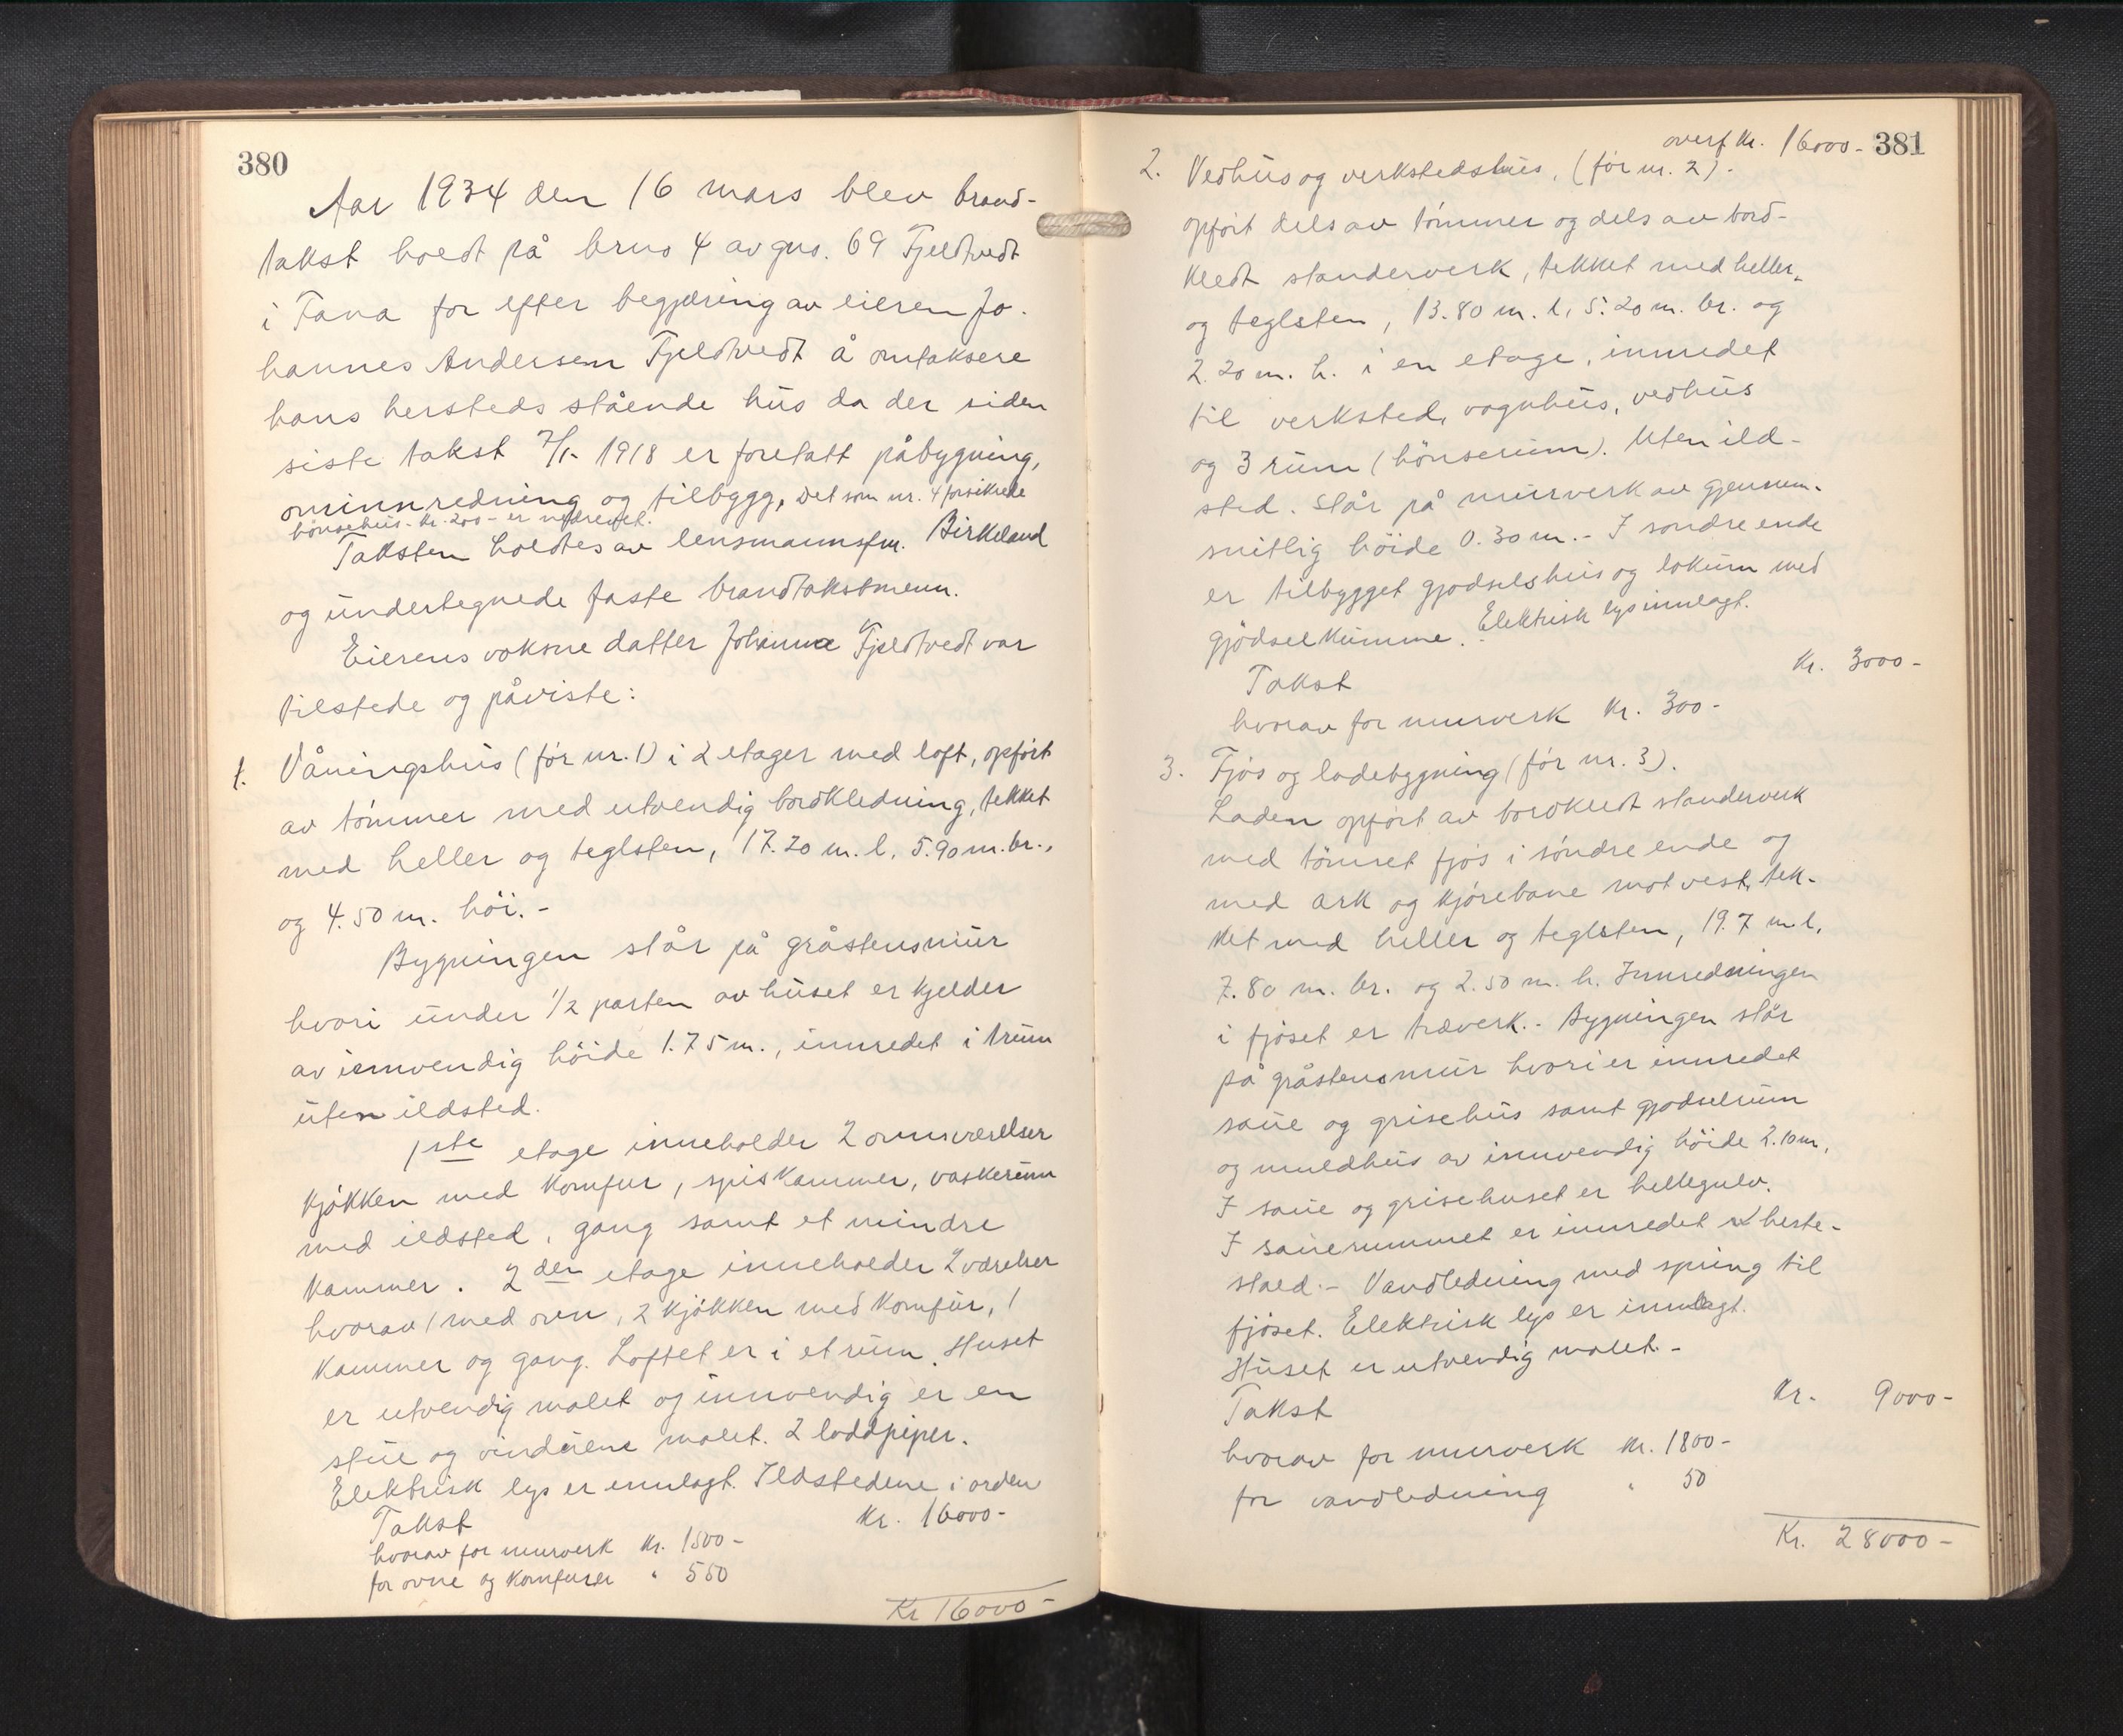 380
Aar 1934 den 16 mars blev brand-
takst holdt på brno 4 av gno. 69 Fjeldtvedt
i Fana for efter begjæring av eieren Jo-
hannes Andersen Fjeldtvedt å omtaksere
hans hersteds stående hus da der siden
siste takst 7/1- 1918 er foretatt påbygning,
ominnredning og tilbygg, Det som nr. 4 forsikrede
hønsehus - kr. 200 - er nedrevet.
Taksten holdtes av lensmannsfm. Birkeland
og undertegnede faste brandtakstmenn.
Eierens voksne datter Johanna Fjeldtvedt var
tilstede og påviste:
1. Våningshus (før nr. 1) i 2 etager med loft, opført
av tømmer med utvendig bordkledning, tekket
med heller og teglsten, 17.20 m. l. 5.90 m. br.,
og 4.50 m. høi. -
Bygningen står på gråstensmur
hvori under 1/2 parten av huset er kjelder
av innvendig høide 1.75 m., innredet i 1 rum
uten ildsted.
1ste etage inneholder 2 ovnsværelser
kjøkken med komfur, spiskammer, vaskerum
med ildsted, gang samt et mindre
kammer. 2den etage inneholder 2 værelser
hvorav 1 med ovn, 2 kjøkken med komfur, 1
kammer og gang. Loftet er i et rum. Huset
er utvendig malet og innvendig er en
stue og vinduene malet. 2 loddpiper.
Elektrisk lys er innlagt. Ildstedene i orden
Takst kr. 16000-
hvorav for murverk kr. 1500-
for ovne og komfurer " 550
Kr 16000-
overf kr. 16000- 381
2. Vedhus og verkstedshus, (før nr. 2).
opført dels av tømmer og dels av bord-
kledt standerverk, tekket med heller
og teglsten, 13.80 m. l, 5.20 m. br. og
2.20 m. h. i en etage, innredet
til verksted, vognhus, vedhus
og 3 rum (hønserum). Uten ild-
sted. Står på murverk av gjennem-
snitlig høide 0.30 m. - I søndre ende
er tilbygget gjødselshus og lokum med
gjødselkumme. Elektrisk lys innlagt.
Takst kr. 3000-
hvorav for murverk kr. 300-
3. Fjøs og ladebygning (før nr. 3).
Laden opført av bordkledt standerverk
med tømret fjøs i søndre ende og
med ark og kjørebane mot vest, tek-
ket med heller og teglsten, 19.7 m l,
7.80 m. br. og 2.50 m. h. Innredningen
i fjøset er træverk. - Bygningen står
på gråstensmur hvori er innredet
saue og grisehus samt gjødselrum
og muldhus av innvendig høide 2.10 m,
I saue og grisehuset er hellegulv.
I sauerummet er innredet heste-
stald. - Vandledning med spring til
fjøset. Elektrisk lys er innlagt.
Huset er utvendig malet. -
Takst kr. 9000-
hvorav for murverk kr. 1800-
for vandledning " 50
Kr. 28000-